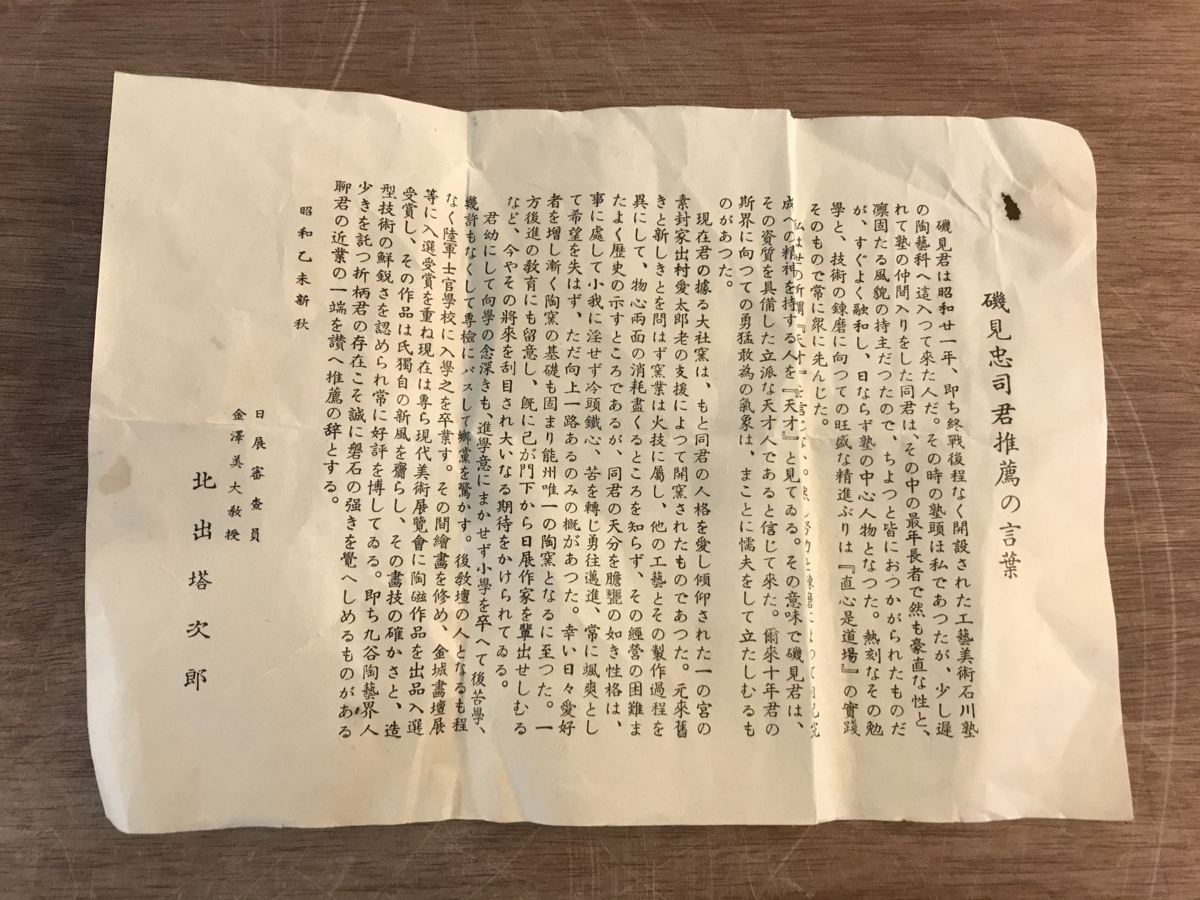 磯見忠司君推薦の言葉
磯見君は昭和廿一年、即ち終戰後程なく開設された工藝美術石川塾
の陶藝科へ這入つて來た人だ。その時の塾頭は私であつたが、少し遲
れて塾の仲間入りをした同君は、その中の最年長者で然も豪直な性と、
凛固たる風貌の持主だつたので、ちよつと皆におつかがられたものだ
が、すぐよく融和し、日ならず塾の中心人物となつた。熱刻なその勉
學と、技術の錬磨に向つての旺盛な精進ぶりは『直心是道場』の實踐
そのもので常に衆に先んじた。
私はせの所謂『天才』を信じない。然し努力と錬磨によつて自己完
成への精神を持する人を『天才』と見てゐる。その意味で磯見君は、
その資質を具備した立派な天才人であると信じて來た。爾來十年君の
斯界に向つての勇猛敢為の氣象は、まことに懦夫をして立たしむるも
のがあつた。
現在君の據る大社窯は、もと同君の人格を愛し傾仰された一の宮の
素封家出村愛太郎老の支援によつて開窯されたものであつた。元來舊
きと新しきとを問はず窯業は火技に屬し、他の工藝とその製作過程を
異にして、物心兩面の消耗盡くるところを知らず、その經營の困難ま
たよく歷史の示すところであるが、同君の天分を膽甕の如き性格は、
事に處して小我に淫せず今頭鐵心、苦を轉じ勇往邁進、常に颯爽とし
て希望を失はず、ただ向上一路あるのみの概があつた。幸い日々愛好
者を增し漸く陶窯の基礎も固まり能州唯一の陶窯となるに至つた。一
方後進の敎育にも留意し、旣に己が門下から日展作家を輩出せしむる
など、今やその將來を刮目され大いなる期待をかけられてゐる。
君幼にして向學の念深きも、進學意にまかせず小學を卒へて後苦學、
幾許もなくして專檢にパスして鄕黨を驚かす。後敎壇の人となるも程
なく陸軍士官學校に入學之を卒業す。その間繪畫を修め、金城畫壇展
等に入選受賞を重ね現在は專ら現代美術展覽會に陶磁作品を出品入選
受賞し、その作品は氏獨自の新風を齎らし、その畫技の確かさと、造
型技術の鮮銳さを認められ常に好評を博してゐる。即ち九谷陶藝界人
少きを託つ折柄君の存在こそ誠に磐石の强きを覺へしめるものがある
聊君の近業の一端を讚へ推薦の辞とする。
昭和乙未新秋
日展審査員
金澤美大敎授
北出塔次郎